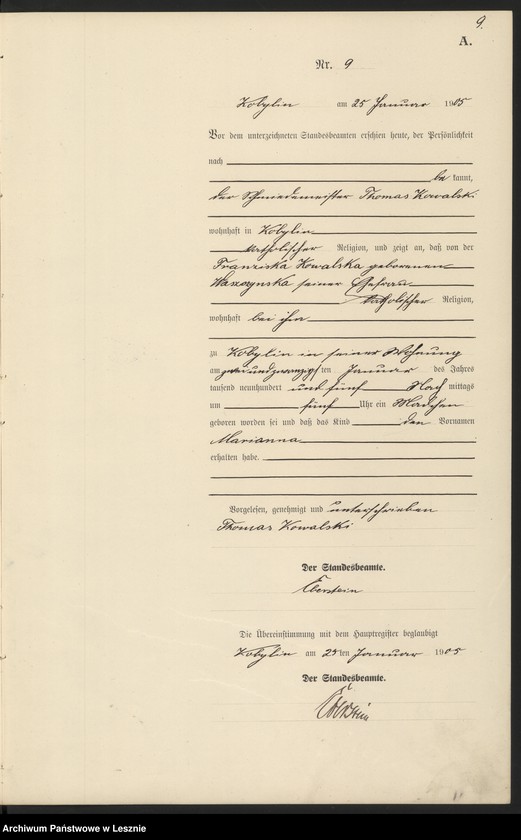 9.
A.
Nr. 9
Kobylin am 25 Januar 1905
Vor dem unterzeichneten Standesbeamten erschien heute, der Persönlichkeit
nach
be kannt,
der Schmiedemeister Thomas Kowalski
wohnhaft in Kobylin
katholischer Religion, und zeigt an, daß von der
Franziska Kowalska geborenen
seiner Ehefrau
katholischer Religion,
wohnhaft bei ihm
zu Kobylin in seiner Wohnung
am zweiundzwanzigs ten Januar des Jahres
tausend neunhundert und fünf Nach mittags
um fünf Uhr ein Mädchen
geboren worden sei und daß das Kind den Vornamen
Marianna
erhalten habe.
Vorgelesen, genehmigt und unterschrieben
Thomas Kowalski
Der Standesbeamte.
Eberstein
Die Übereinstimmung mit dem Hauptregister beglaubigt
Kobylin am 25ten Januar 1905
Der Standesbeamte.
Eberstein
Archiwum Państwowe w Lesznie